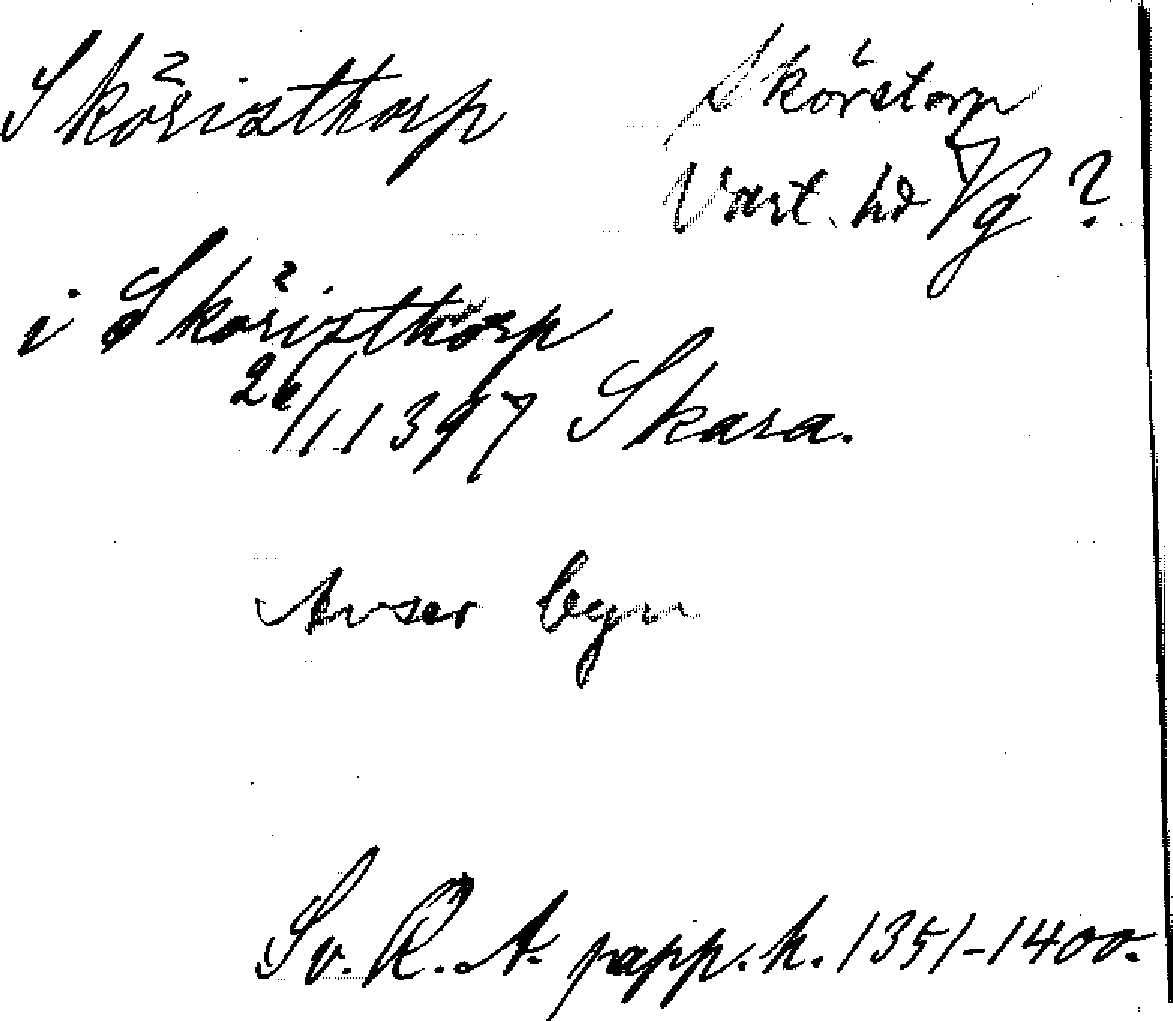 Sköristhorp
Skörstorp
Vart. hd Vg ?
i Sköristhorp
26/1 1397 Skara.
Avser byn
Sv. R. A. papp. h. 1351-1400.